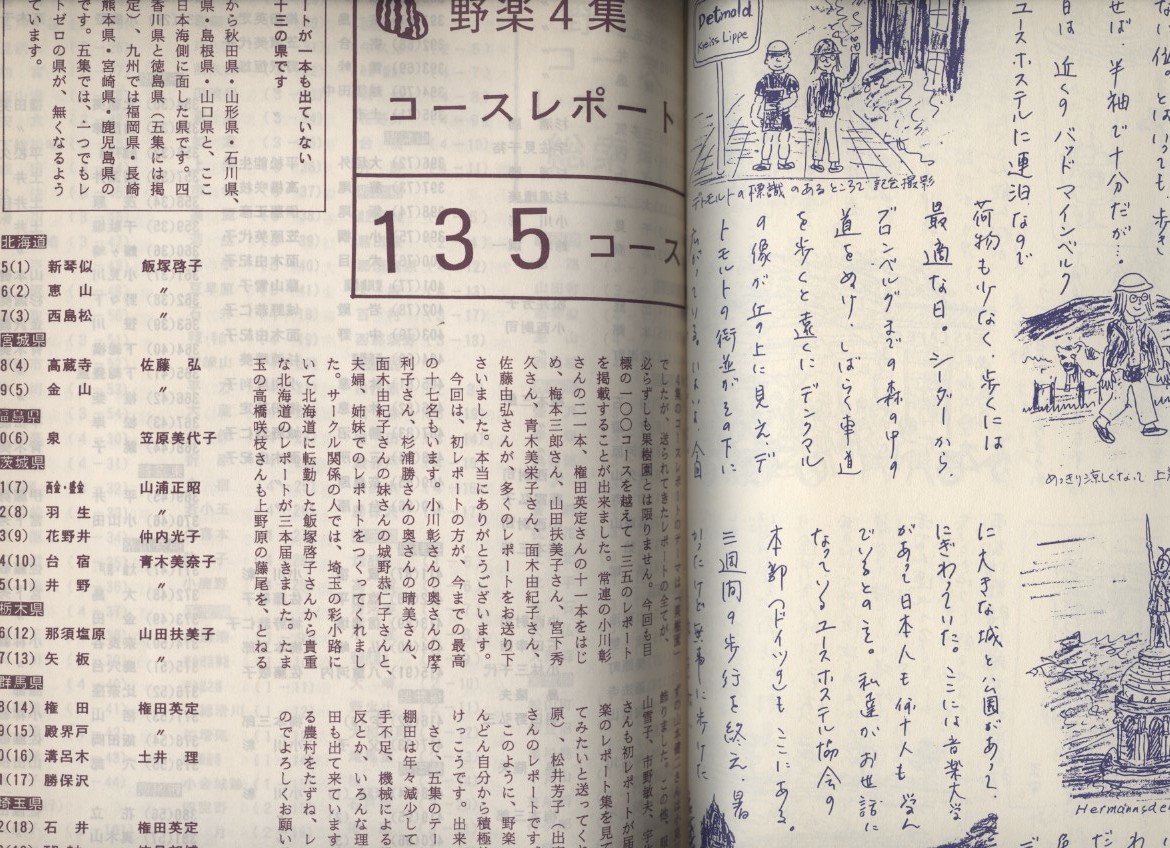 野楽4集
コースレポート
135コース
ートが一本も出ていない
十三の県です
から秋田県・山形県・石川県、
県・島根県・山口県と、ここ
日本海側に面した県です。四
香川県と徳島県(五集では掲
定)、九州では福岡県・長崎
熊本県・宮崎県・鹿児島県の
です。五集では、一つでもレ
トゼロの県が、無くなるよう
ています。
必らずしも果樹園とは限りません。今回も目
標の一〇〇コースを越えて一三五のレポート
を掲載することが出来ました。常連の小川彰
さんの二一本、権田英定さんの十一本をはじ
め、梅本三郎さん、山田扶美子さん、宮下秀
久さん、青木美奈子さん、面木由紀子さん、
佐藤由弘さんが、多くのレポートをお送り下
さいました。本当にありがとうございます。
今回は、初レポーターの方が、今までの最高
の十七名もいます。小川彰さんの奥さんの摩
利子さん、杉浦勝さんの奥さんの晴美さん、
面木由紀子さんの妹さんの城野恭仁子さんと、
夫婦、姉妹でのレポートをつくってくれまし
た。サークル関係の人では、埼玉の彩小路に
いて北海道に転勤した飯塚啓子さんから貴重
な北海道のレポートが三本届きました。たま
玉の高橋咲枝さんも上野原の藤尾を、とねる
山雪子、市野
さんも初レポートが届
楽のレポート集を見て
てみたいと送ってくれ
原)、松井芳子(出
さんのレポートです。
このように、野楽
んどん自分から積極
けっこうです。出来
るさで、五集のテー
棚田は年々減少して
手不足、機械による
反とか、いろんな理
田も出て来ています
る農村をたずね、レ
のでよろしくお願い
北海道
5(1) 新琴似 飯塚啓子
6(2) 恵山 〃
7(3) 西島松 〃
宮城県
8(4) 高蔵寺 佐藤弘
9(5) 金山 〃
福島県
0(6) 泉 笠原美代子
茨城県
1(7) 山浦正昭
2(8) 羽生 〃
3(9) 花野井 仲内光子
4(10) 台宿 青木美奈子
5(11) 井野 〃
栃木県
6(12) 那須塩原 山田扶美子
7(13) 矢板 〃
群馬県
8(14) 権田 権田英定
9(15) 殿界戸 〃
0(16) 溝呂木 土井理
1(17) 勝保沢 〃
埼玉県
2(18) 石井 権田英定
Detmold
Kreiss Lippe
デトモルトの標識のあるところで記念撮影
せば、半袖で十分だが…。
日は近くのバッドマインベルク
ユースホステルに連泊なので
荷物も少なく、歩くには
最適な日。シーダーから
ブロンベルグまでの森の中の
道をめぐり、しばらく車道
を歩くと遠くにデンクマル
の像が丘の上に見え、デ
トモルトの街並がその下に
めっきり涼しくなって
に大きな城と公園があって、
にぎわっていた。ここには音楽大学
があって日本人も何十人も学ん
でいるとのこと。私達がお世話に
なっているユースホステル協会の
本部(ドイツの)もここにある。
三週間の歩行を終え、暑
かったけど無事に歩けた
Hermannsde